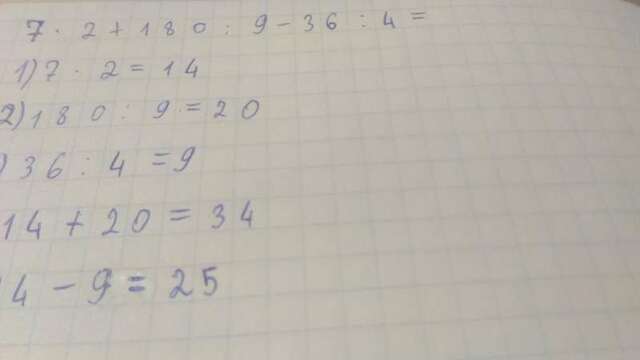 7 · 2 + 180 : 9 - 36 : 4 =
1) 7 · 2 = 14
2) 180 : 9 = 20
) 36 : 4 = 9
14 + 20 = 34
4 - 9 = 25